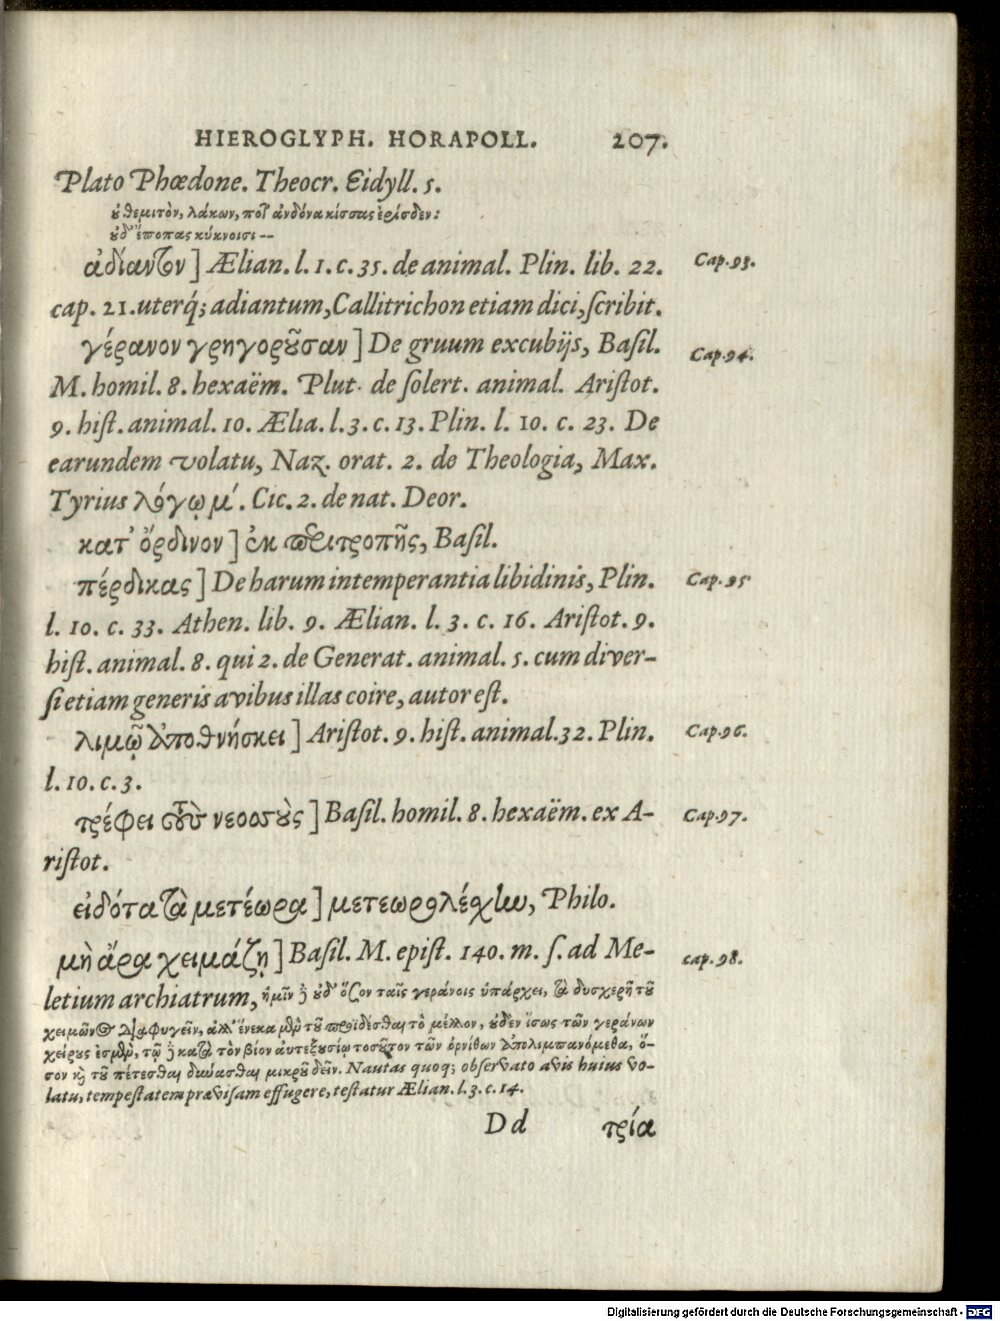 HIEROGLYPH. HORAPOLL. 207.
Plato Phœdone. Theocr. Eidyll. 5.
οὐ θεμιτὸν, λάκων, ποτ᾽ ἀηδόνα κίσσας ἐρίσδεν:
οὐδ᾽ ἔποπας κύκνοισι --
ἀδίαντον] Ælian. l. 1. c. 35. de animal. Plin. lib. 22. Cap. 93.
cap. 21. uterq́; adiantum, Callitrichon etiam dici, ſcribit.
γέρανον γρηγοροῦσαν] De gruum excubijs, Baſil. Cap. 94.
M. homil. 8. hexaëm. Plut. de ſolert. animal. Ariſtot.
9. hiſt. animal. 10. Ælia. l. 3. c. 13. Plin. l. 10. c. 23. De
earundem volatu, Naz. orat. 2. de Theologia, Max.
Tyrius λόγῳ μʹ. Cic. 2. de nat. Deor.
κατ᾽ ὄρδινον] ἐκ περιτροπῆς, Baſil.
πέρδικας] De harum intemperantia libidinis, Plin. Cap. 95
l. 10. c. 33. Athen. lib. 9. Ælian. l. 3. c. 16. Ariſtot. 9.
hiſt. animal. 8. qui 2. de Generat. animal. 5. cum diver-
ſi etiam generis avibus illas coire, autor eſt.
λιμῷ ἀποθνήσκει] Ariſtot. 9. hiſt. animal. 32. Plin. Cap. 96.
l. 10. c. 3.
τρέφει τοὺς νεοσσοὺς] Baſil. homil. 8. hexaëm. ex A- Cap. 97.
riſtot.
εἰδότα τὰ μετέωρα] μετεωρολέχην, Philo.
μὴ ἄρα χειμάζῃ] Baſil. M. epiſt. 140. m. ſ. ad Me- cap. 98.
letium archiatrum, ἡμῖν δὲ οὐδ᾽ ὅσον ταῖς γεράνοις ὑπάρχει, τὰ δυσχερῆ τοῦ
χειμῶνος διαφυγεῖν, ἀλλ᾽ ἕνεκα μὲν τοῦ προϊδέσθαι τὸ μέλλον, οὐδὲν ἴσως τῶν γεράνων
χείρους ἐσμὲν, τῷ δὲ κατὰ τὸν βίον αὐτεξουσίῳ τοσοῦτον τῶν ὀρνίθων ἀπολιμπανόμεθα, ὅ-
σον καὶ τοῦ πέτεσθαι δύνασθαι μικροῦ δεῖν. Nautas quoq; obſervato avis huius vo-
latu, tempeſtatem præviſam effugere, teſtatur Ælian. l. 3. c. 14.
D d τρία
Digitalisierung gefördert durch die Deutsche Forschungsgemeinschaft - DFG